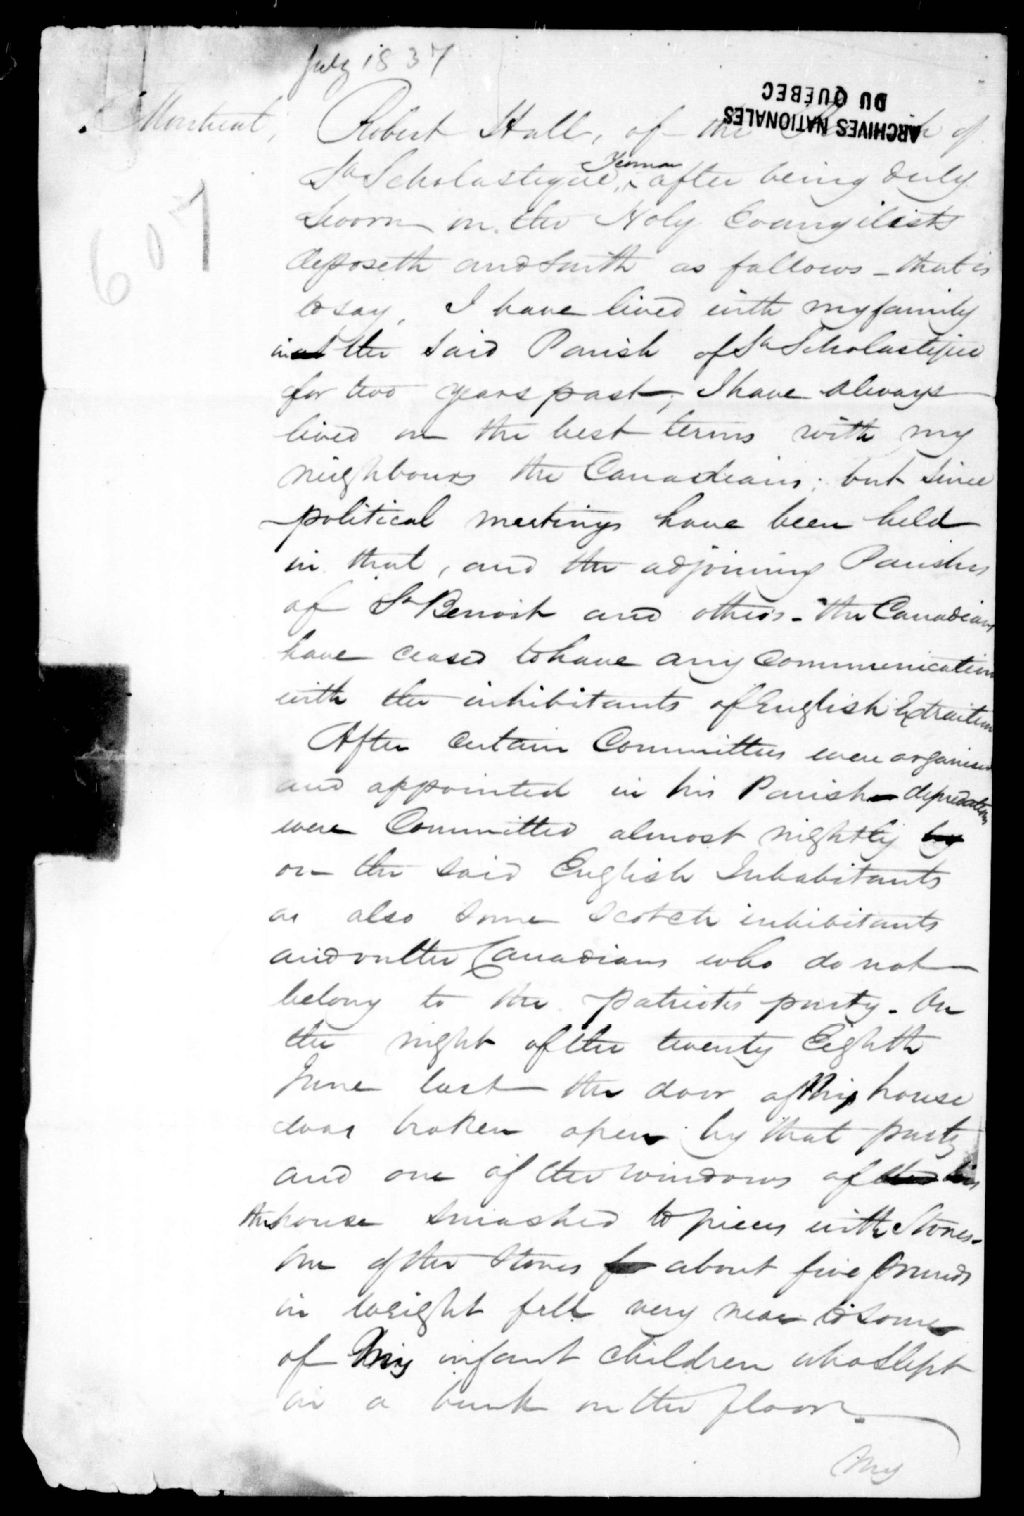 July 1837
ARCHIVES NATIONALES
DU QUÉBEC
Montreal, Robert Hall, of the Parish of
Ste Scholastique, Yeoman after being duly
Sworn on the Holy Evangilists
deposeth and saith as follows - that is
to say, I have lived with my family
607
in the said Parish of Ste Scholastique
for two years past, I have always
lived on the best terms with my
neighbours the Canadians; but since
political meetings have been held
in that, and the adjoining Parishes
of St Benoit and others - the Canadians
have ceased to have any Communication
with the inhibitants of English Extraction
After certain Committees were organised
and appointed in his Parish - depredations
were Committed almost nightly by
on the said English Inhabitants
as also some Scotch inhibitants
and on the Canadians who do not
belong to the patriots party - On
the night of the twenty Eighth
June last the door of my house
was broken open by that party
and one of the windows of
the house smashed to pieces with Stones -
One of the Stones about five pounds
in weight fell very near to some
of my infant children who slept
in a bunk on the floor.
My